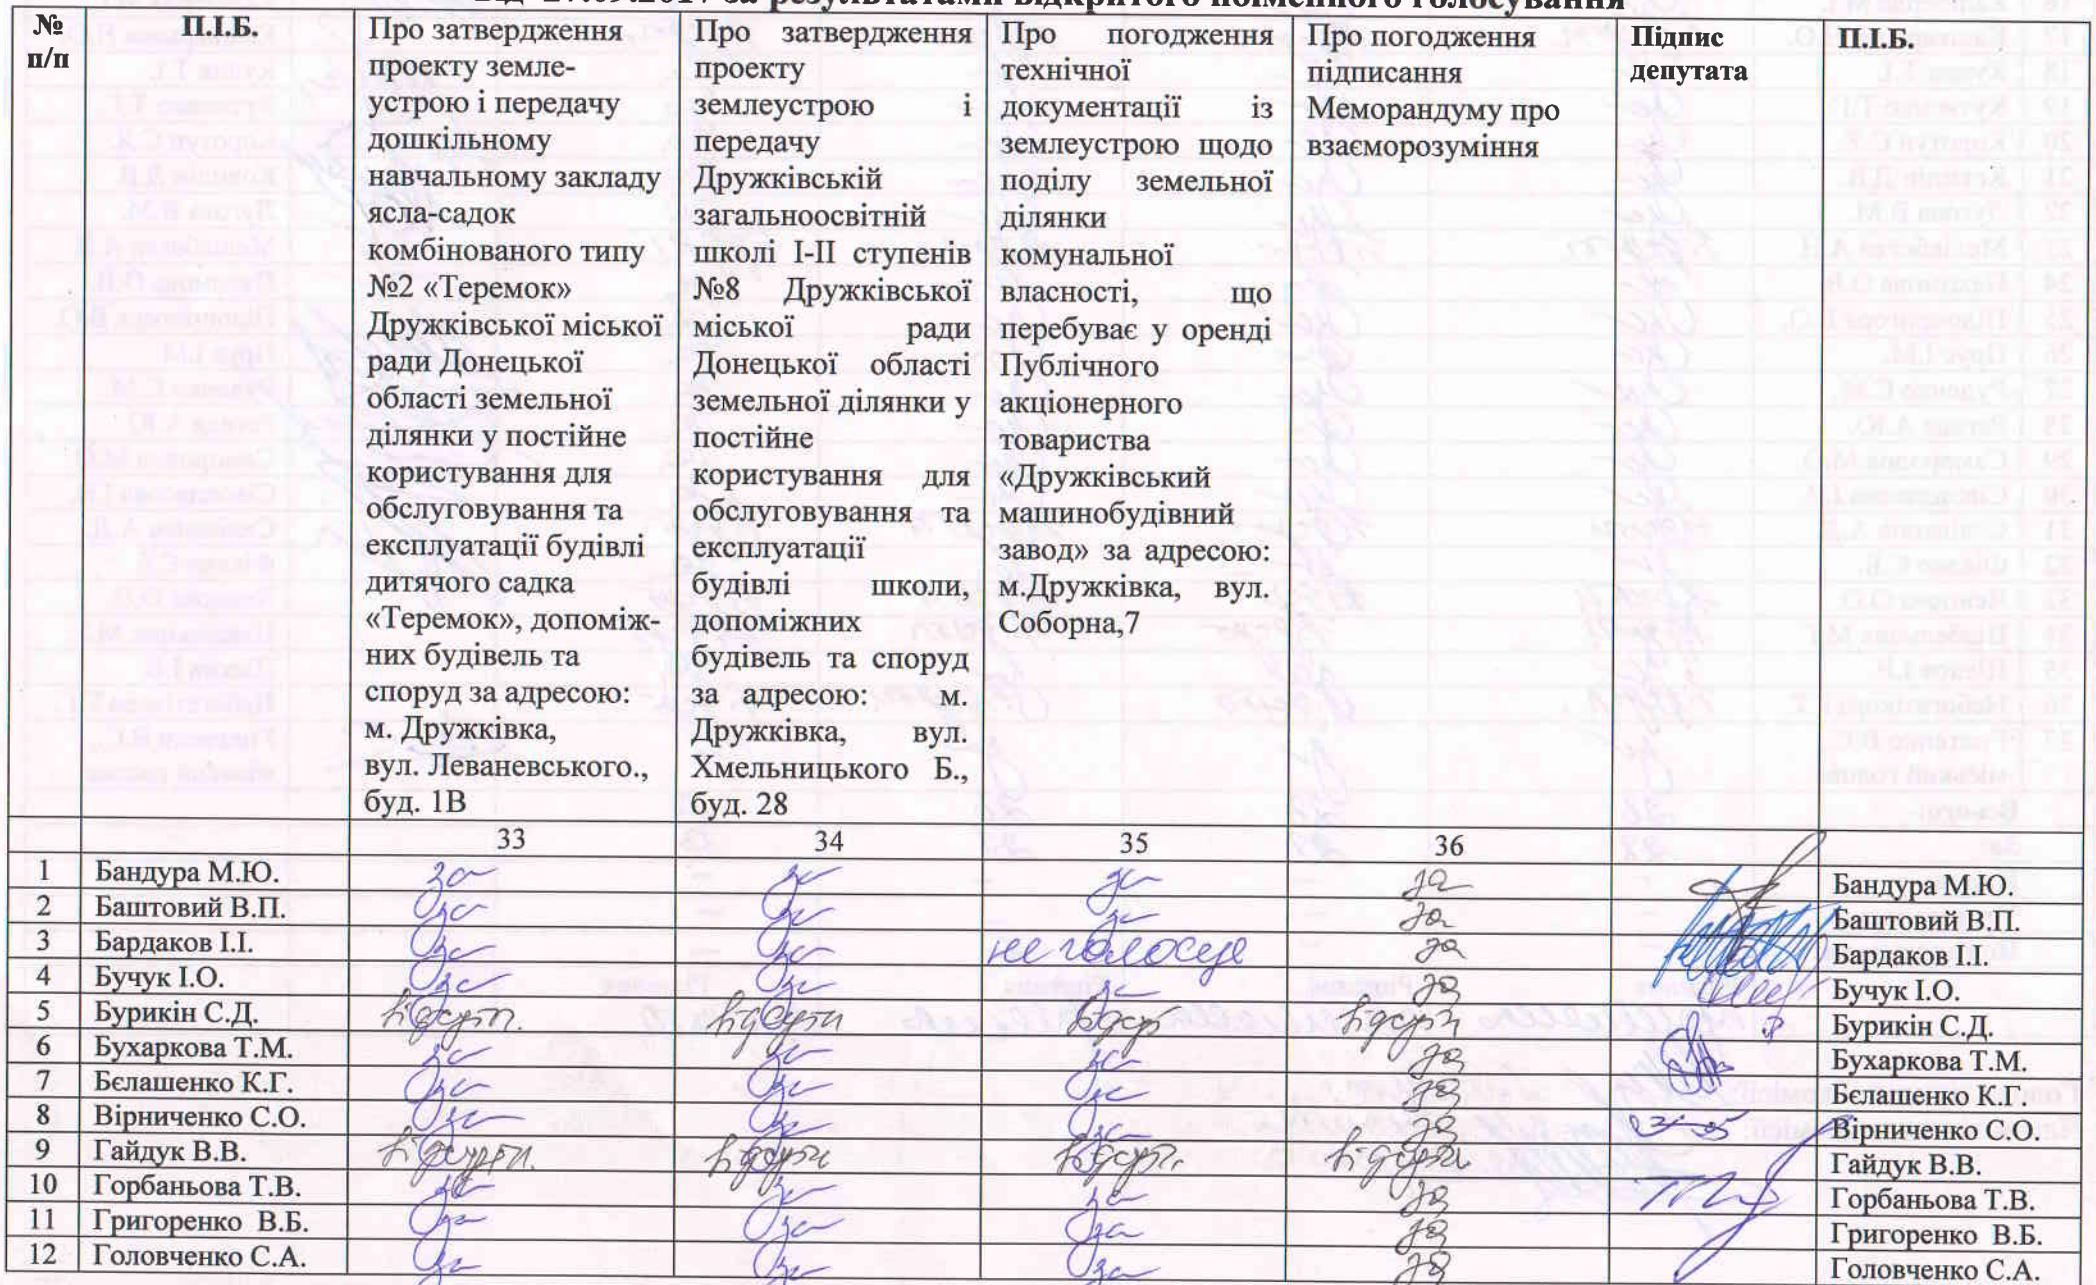 від 27.09.2017 за результатами відкритого поіменного голосування
№ п/п
П.І.Б.
Про затвердження
проекту земле-
устрою і передачу
дошкільному
навчальному закладу
ясла-садок
комбінованого типу
№2 «Теремок»
Дружківської міської
ради Донецької
області земельної
ділянки у постійне
користування для
обслуговування та
експлуатації будівлі
дитячого садка
«Теремок», допоміж-
них будівель та
споруд за адресою:
м. Дружківка,
вул. Леваневського.,
буд. 1В
Про затвердження
проекту
землеустрою і
передачу
Дружківській
загальноосвітній
школі І-ІІ ступенів
№8 Дружківської
міської ради
Донецької області
земельної ділянки у
постійне
користування для
обслуговування та
експлуатації
будівлі школи,
допоміжних
будівель та споруд
за адресою: м.
Дружківка, вул.
Хмельницького Б.,
буд. 28
Про погодження
технічної
документації із
землеустрою щодо
поділу земельної
ділянки
комунальної
власності, що
перебуває у оренді
Публічного
акціонерного
товариства
«Дружківський
машинобудівний
завод» за адресою:
м.Дружківка, вул.
Соборна,7
Про погодження
підписання
Меморандуму про
взаєморозуміння
Підпис
депутата
П.І.Б.
33 34 35 36
1 Бандура М.Ю. за за за за Бандура М.Ю.
2 Баштовий В.П. за за за за Баштовий В.П.
3 Бардаков І.І. за за не голосує за Бардаков І.І.
4 Бучук І.О. за за за за Бучук І.О.
5 Бурикін С.Д. відсутн. відсутн відсут відсутн Бурикін С.Д.
6 Бухаркова Т.М. за за за за Бухаркова Т.М.
7 Бєлашенко К.Г. за за за за Бєлашенко К.Г.
8 Вірниченко С.О. за за за за Вірниченко С.О.
9 Гайдук В.В. відсутн. відсутн відсутн. відсутн Гайдук В.В.
10 Горбаньова Т.В. за за за за Горбаньова Т.В.
11 Григоренко В.Б. за за за за Григоренко В.Б.
12 Головченко С.А. за за за за Головченко С.А.